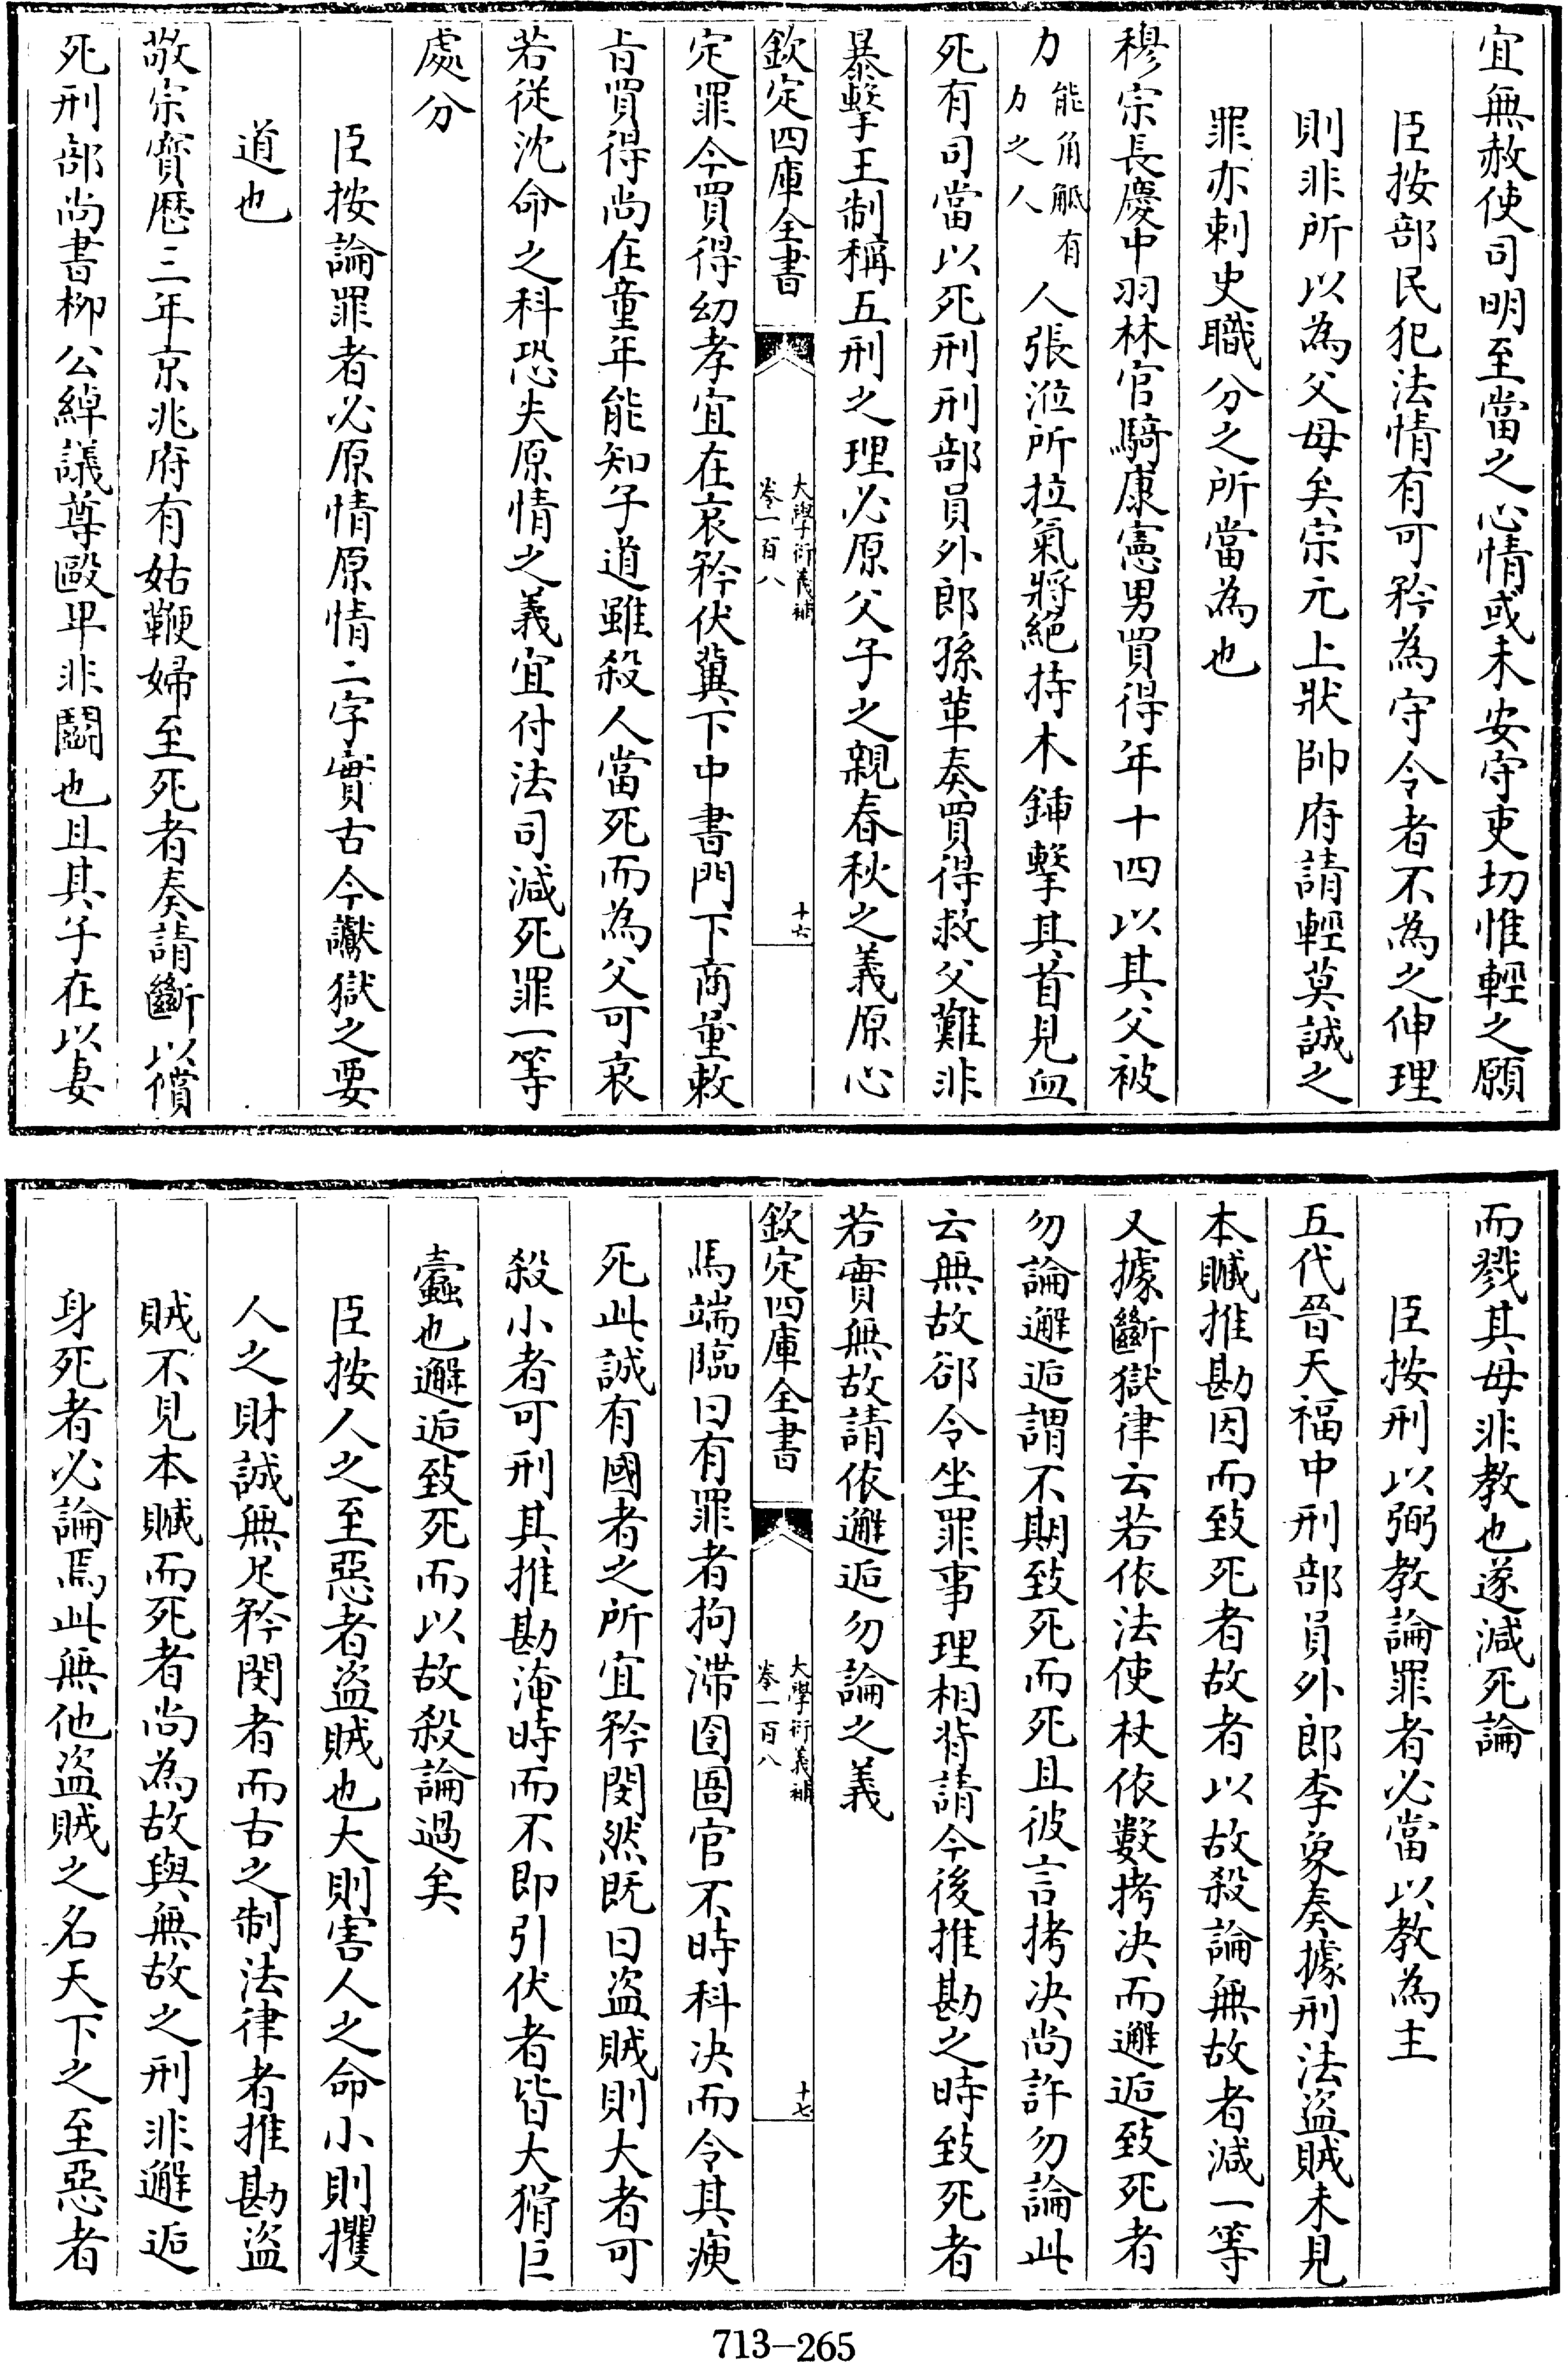 宜無赦使司明至當之心情或未安守吏切惟輕之願
臣按部民犯法情有可矜為守令者不為之伸理
則非所以為父母矣宗元上狀帥府請輕莫誠之
罪亦刺史職分之所當為也
穆宗長慶中羽林官騎康憲男買得年十四以其父被
力
能角觝有
力之人
人張涖所拉氣將絕持木鍤擊其首見血
死有司當以死刑刑部員外郎孫革奏買得救父難非
暴擊王制稱五刑之理必原父子之親春秋之義原心
欽定四庫全書
大學衍義補
卷一百八
十六
定罪今買得幼孝宜在哀矜伏冀下中書門下商量敕
㫖買得尚在童年能知子道雖殺人當死而為父可哀
若從沈命之科恐失原情之義宜付法司減死罪一等
處分
臣按論罪者必原情原情二字實古今讞獄之要
道也
敬宗寶厯三年京兆府有姑鞭婦至死者奏請斷以償
死刑部尚書柳公綽議尊毆卑非鬭也且其子在以妻
而戮其母非教也遂減死論
臣按刑以弼教論罪者必當以教為主
五代晉天福中刑部員外郎李象奏據刑法盜賊未見
本贓推勘因而致死者故者以故殺論無故者減一等
又據斷獄律云若依法使杖依數拷决而邂逅致死者
勿論邂逅謂不期致死而死且彼言拷决尚許勿論此
云無故郤令坐罪事理相背請今後推勘之時致死者
若實無故請依邂逅勿論之義
欽定四庫全書
大學衍義補
卷一百八
十七
馬端臨曰有罪者拘滯囹圄官不時科决而令其瘐
死此誠有國者之所宜矜閔然既曰盜賊則大者可
殺小者可刑其推勘淹時而不即引伏者皆大猾巨
蠹也邂逅致死而以故殺論過矣
臣按人之至惡者盜賊也大則害人之命小則攫
人之財誠無足矜閔者而古之制法律者推勘盜
賊不見本贓而死者尚為故與無故之刑非邂逅
身死者必論焉此無他盜賊之名天下之至惡者
713-265